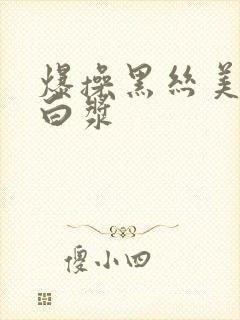 爆操黑丝美
白浆
傻小四